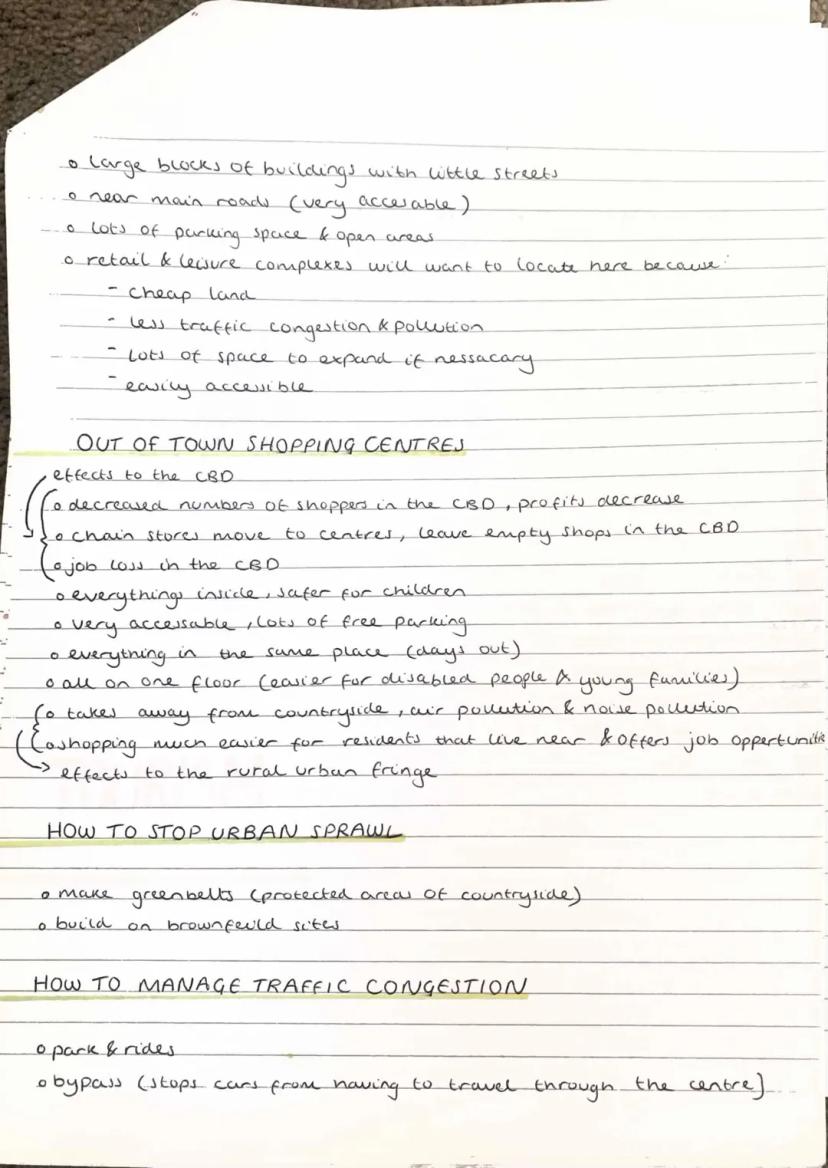 o large blocks of buildings with little streets
o near main roads (very accesable)
o lots of parking space & open areas
o retail & leisure complexes will want to locate here because:
- cheap land
- less traffic congestion & pollution
- lots of space to expand if nessacary
- easily accessible
OUT OF TOWN SHOPPING CENTRES
effects to the CBD
o decreased numbers of shoppers in the CBD, profits decrease
o chain stores move to centres, leave empty shops in the CBD
o job loss in the CBD
o everythings inside, safer for children
o very accessable, lots of free parking
o everything in the same place (days out)
o all on one floor (easier for disabled people & young families)
o takes away from countryside, air pollution & noise pollution
o shopping much easier for residents that live near & offers job oppertunitie
effects to the rural urban fringe
HOW TO STOP URBAN SPRAWL
o make greenbelts (protected areas of countryside)
o build on brownfeild sites
HOW TO MANAGE TRAFFIC CONGESTION
o park & rides
o bypass (stops cars from having to travel through the centre)